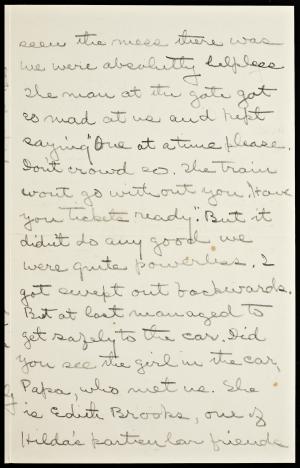 seen the mess there was
we were absolutly helpless
The man at the gate got
so mad at us and kept
saying "One at a time please.
Dont crowd so. The train
wont go without you. Have
you tickets ready." But it
didn't do any good we
were quite powerless. I
got swept out backwards.
But at last managed to
get safely to the car. Did
you see the girl in the car,
Papa, who met us. She
is Edith Brooks, one of
Hilda's particular friends